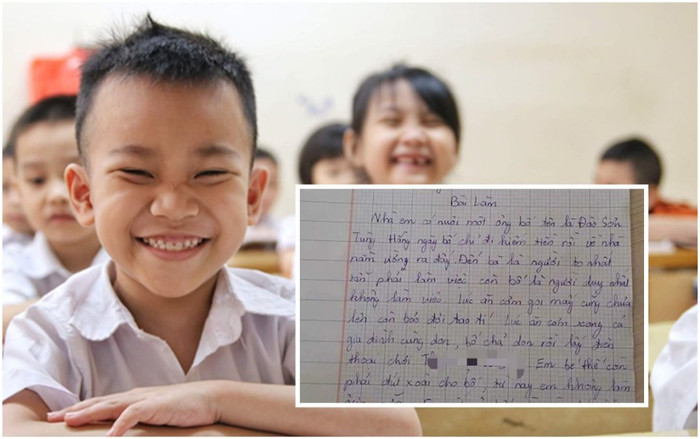 Bài làm
Nhà em có nuôi một ông bố tên là Đào Sơn
Tùng Hằng ngày bố chỉ đi kiếm tiền rồi về nhà
nằm uống ra đấy. Đến bà là người to nhất
vẫn phải làm việc còn bố là người duy nhất
không làm việc. Lúc ăn cơm gọi mãi cũng chưa
lên còn bảo đợi tao tí. Lúc ăn cơm xong cả
gia đình cùng dọn, bố chả dọn rồi lấy điện
thoại chơi Em bé thế còn
phải đút xoài cho bố, từ nay em không làm